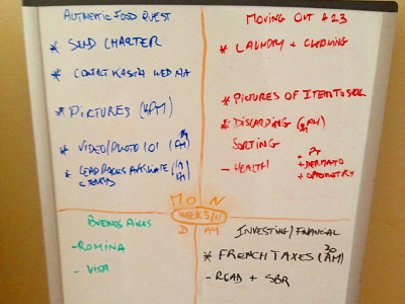 AUTHENTIC FOOD QUEST
* SEND CHARTER
* CONTACT KASHA WED
* PICTURES (4PM)
* VIDEO/PHOTO 101
* LEAD PAGES
MOVING OUT #23
* LAUNDRY + CLOTHING
* PICTURES OF ITEM TO SELL
* DISCARDING
SORTING
- HEALTH
• PT
+ DERMATO
+ OPTOMETRY
MON
WEEK 5/11
D AM
BUENOS AIRES
- ROMINA
- VISA
INVESTING/FINANCIAL
* FRENCH TAXES (30 AM)
- READ + SBR